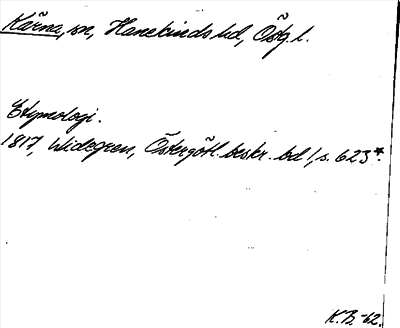 Kärna, sn, Hanekinds hd, Östg. l.
Etymologi.
1817, Widegren, Östergötl. beskr. bd 1, s. 623*.
K.B. -62.